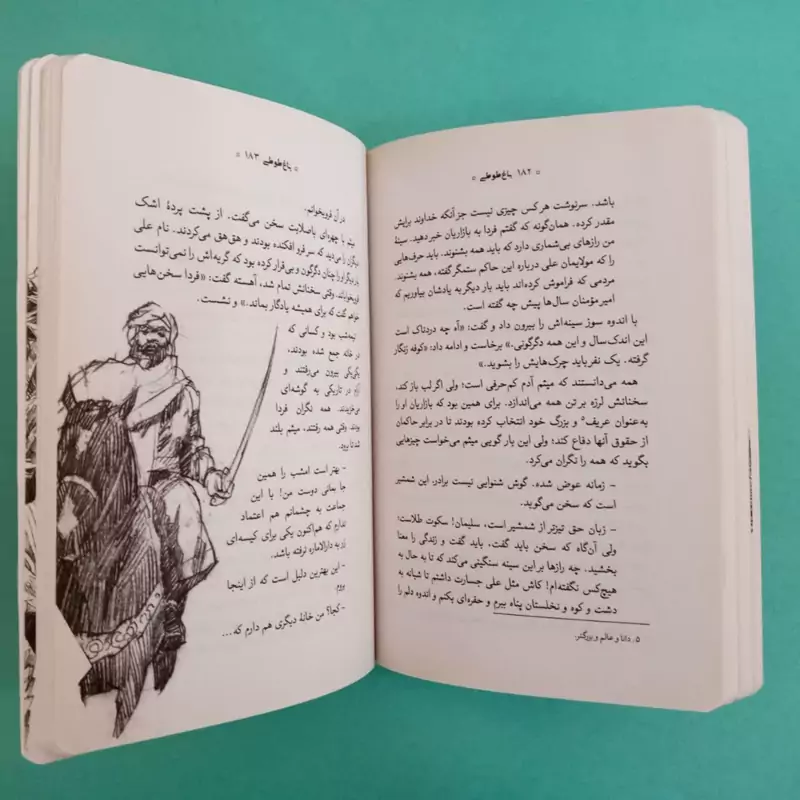 * ۱۸۲ باغ طوطی *
باشد. سرنوشت هر کس چیزی نیست جز آنکه خداوند برایش
مقدر کرده. همان‌گونه که گفتم فردا به بازاریان خبر دهید. سینهٔ
من رازهای بی‌شماری دارد که باید همه بشنوند. باید حرف‌هایی
را که مولایمان علی درباره این حاکم ستمگر گفته، همه بشنوند.
مردمی که فراموش کرده‌اند باید بار دیگر به یادشان بیاوریم که
امیرمؤمنان سال‌ها پیش چه گفته است.
با اندوه سوز سینه‌اش را بیرون داد و گفت: «آه چه دردناک است
این اندک‌سال و این همه دگرگونی.» برخاست و ادامه داد: «کوفه زنگار
گرفته. یک نفر باید چرک‌هایش را بشوید.»
همه می‌دانستند که میثم آدم کم‌حرفی است؛ ولی اگر لب باز کند،
سخنانش لرزه بر تن همه می‌اندازد. برای همین بود که بازاریان او را
به‌عنوان عریف۵ و بزرگ خود انتخاب کرده بودند تا در برابر حاکمان
از حقوق آنها دفاع کند؛ ولی این بار گویی میثم می‌خواست چیزهایی
بگوید که همه را نگران می‌کرد.
- زمانه عوض شده. گوش شنوایی نیست برادر، این شمشیر
است که سخن می‌گوید.
- زبان حق تیزتر از شمشیر است، سلیمان! سکوت طلاست؛
ولی آن‌گاه که سخن باید گفت، باید گفت و زندگی را معنا
بخشید. چه رازها بر این سینه سنگینی می‌کند که تا به حال به
هیچ‌کس نگفته‌ام! کاش مثل علی جسارت داشتم تا شبانه به
دشت و کوه و نخلستان پناه ببرم و حفره‌ای بکنم و اندوه دلم را
۵. دانا و عالم و بزرگتر.
* باغ طوطی ۱۸۳ *
در آن فرو بخوانم.
میثم با چهره‌ای باصلابت سخن می‌گفت. از پشت پردهٔ اشک
دیگران را می‌دید که سر فرو افکنده بودند و هق‌هق می‌کردند. نام علی
بار دیگر او را چنان دگرگون و بی‌قرار کرده بود که گریه‌اش را نمی‌توانست
فرو خواباند. وقتی سخنانش تمام شد، آهسته گفت: «فردا سخن‌هایی
خواهم گفت که برای همیشه یادگار بماند.» و نشست.
نیمه‌شب بود و کسانی که
در خانه جمع شده بودند،
یکی‌یکی بیرون می‌رفتند و
آرام در تاریکی به گوشه‌ای
می‌خزیدند. همه نگران فردا
بودند. وقتی همه رفتند، میثم بلند
شد تا برود.
- بهتر است امشب را همین
جا بمانی دوست من! با این
جماعت به چشمانم هم اعتماد
ندارم که هم‌اکنون یکی برای کیسه‌ای
زر به دارالاماره نرفته باشد.
- این بهترین دلیل است که از اینجا
بروم.
- کجا؟ من خانهٔ دیگری هم دارم که...